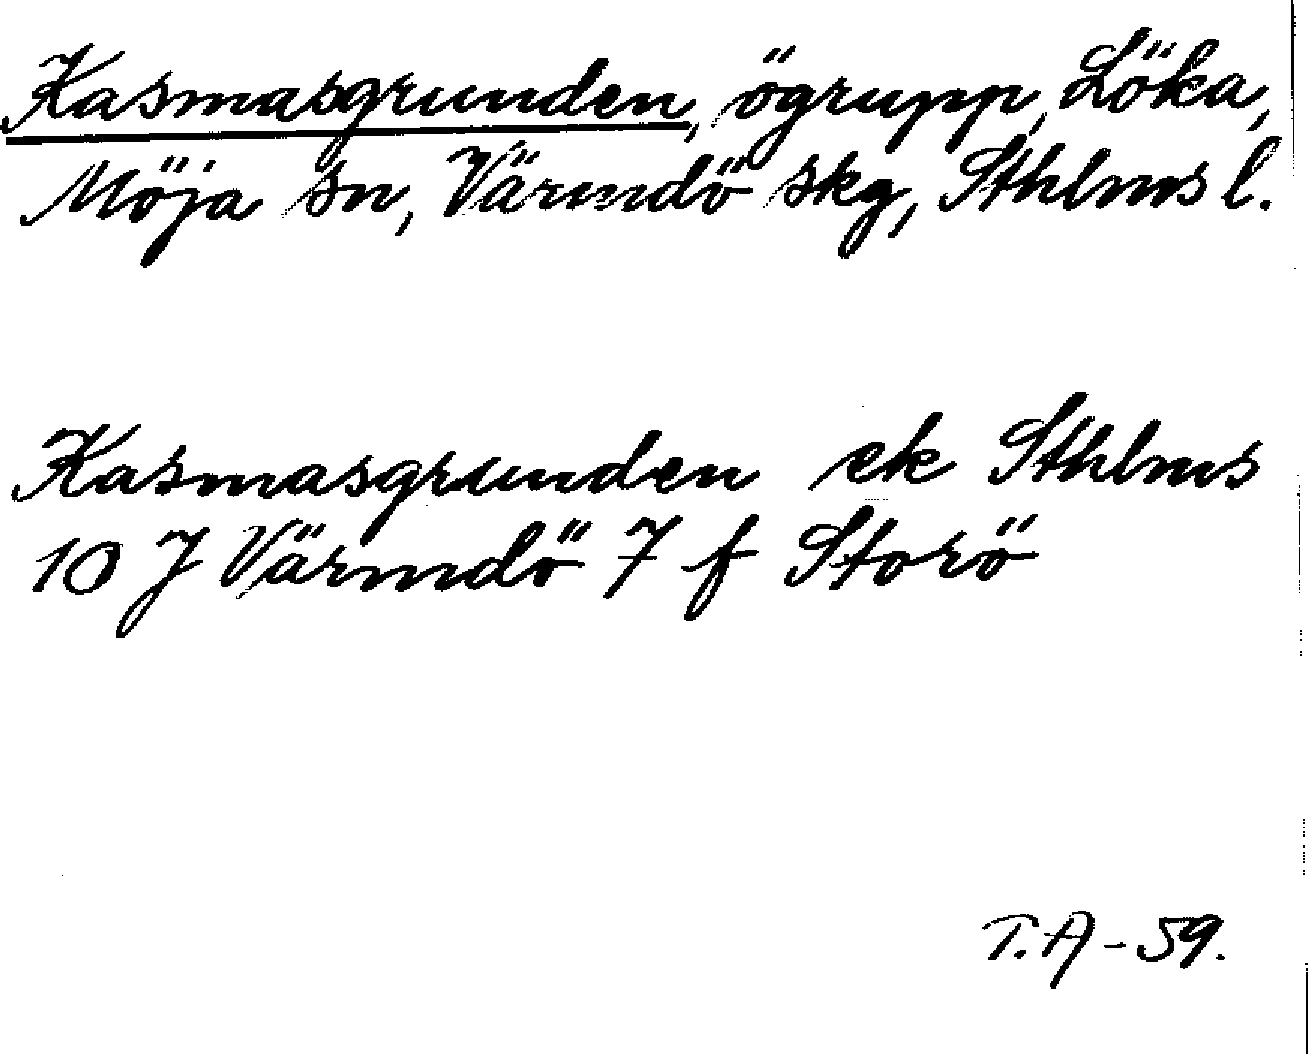 Kasmasgrunden, ögrupp, Löka,
Möja sn, Värmdö skg, Sthlms l.
Kasmasgrunden ek Sthlms
10 J Värmdö 7 f Storö
T.A-59.